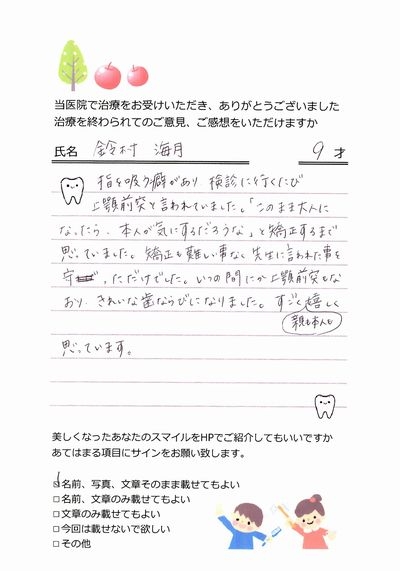 当医院で治療をお受けいただき、ありがとうございました
治療を終わられてのご意見、ご感想をいただけますか
氏名 鈴村 海月 9 才
指を吸う癖があり 検診に行くたび
上顎前突と言われていました。「このまま大人に
なったら、本人が気にするだろうな」と矯正するまで
思っていました。矯正も難しい事なく先生に言われた事を
守っただけでした。いつの間にか上顎前突もな
おり、きれいな歯ならびになりました。すごく嬉しく
親も本人も
思っています。
美しくなったあなたのスマイルをHPでご紹介してもいいですか
あてはまる項目にサインをお願い致します。
□名前、写真、文章そのまま載せてもよい
□名前、文章のみ載せてもよい
□文章のみ載せてもよい
□今回は載せないで欲しい
□その他